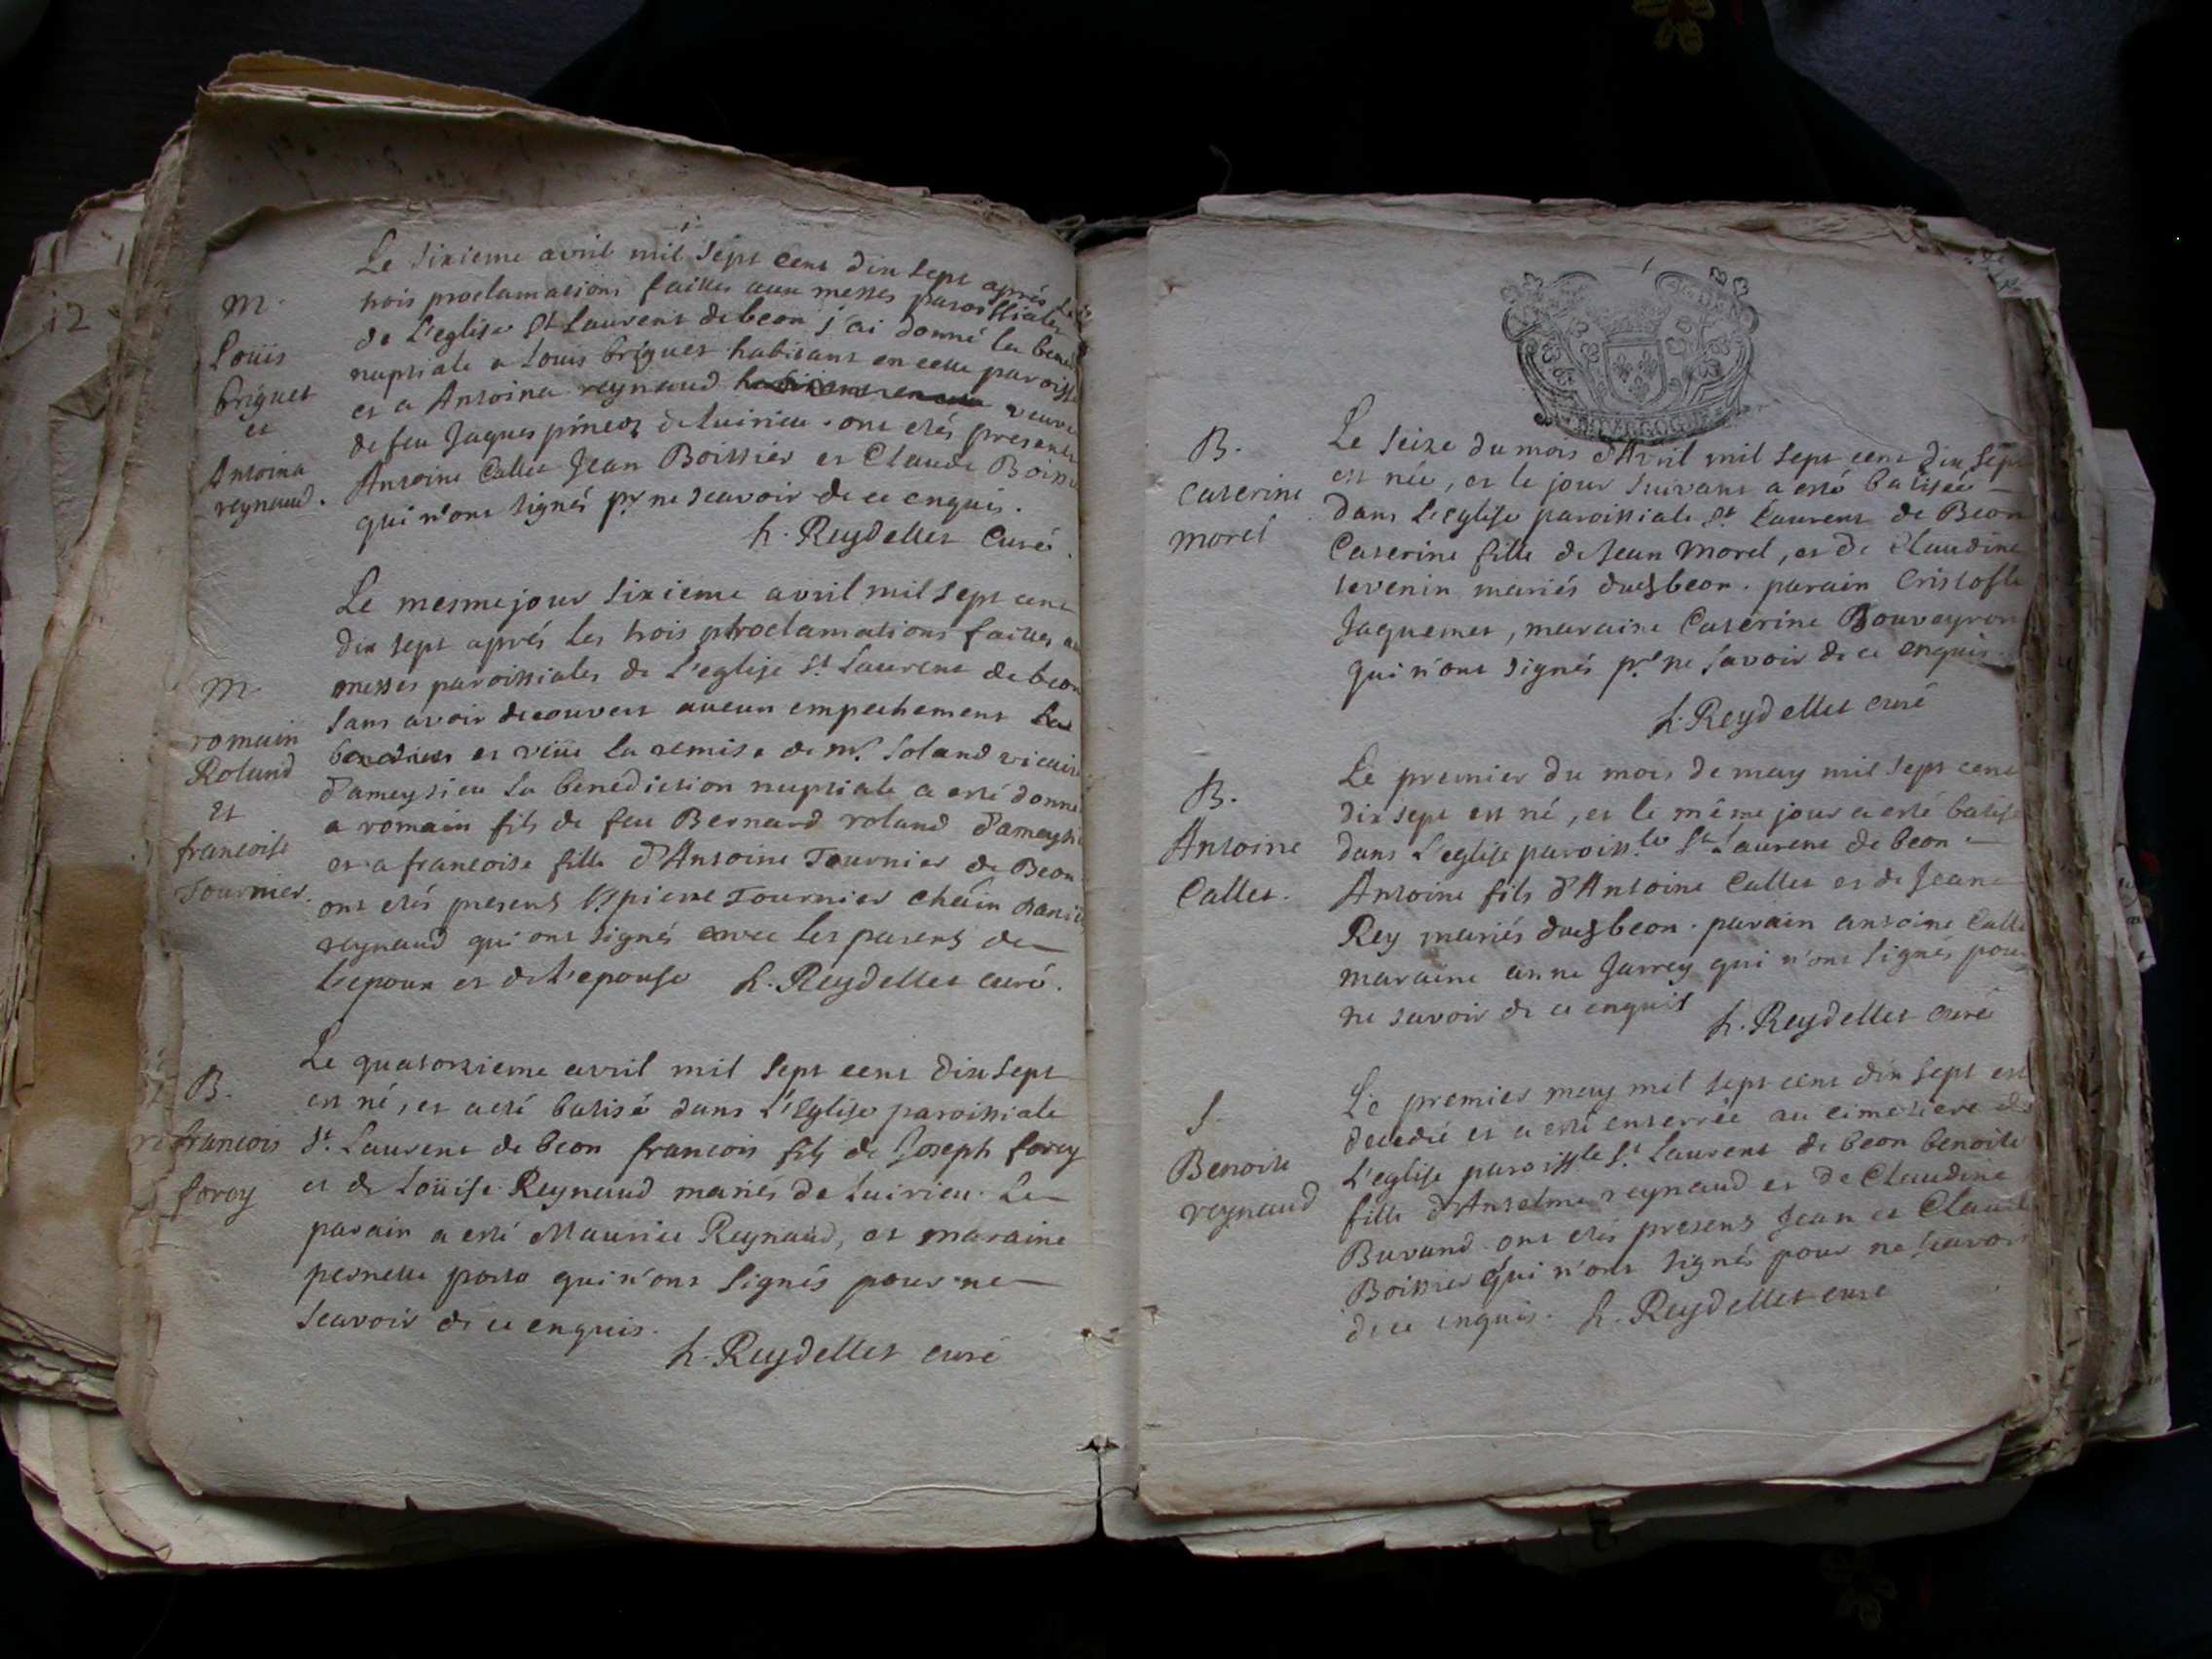 12
Le sixieme avril mil sept cent dix sept aprés les
trois proclamations faittes aux messes paroissiales
de L'eglise St Laurent de beon j'ai donné la bened
nuptiale a Louis briguet habitant en cette paroisse
et a Antoina reynaud veuve
de feu Jaques pinet de luirieu. ont etés presents
Antoine Callet Jean Boissier et Claude Boiss
qui n'ont signés pr ne scavoir de ce enquis.
h. Reydellet Curé.
M.
Louis
briguet
et
Antoina
reynaud.
Le mesme jour sixieme avril mil sept cent
dix sept aprés les trois proclamations faittes au
messes paroissiales de L'eglise St Laurent de beon
sans avoir decouvert aucun empechement
et veüe la remise de mr. Soland vicaire
d'ameysieu la benediction nuptiale a esté donné
a romain fils de feu Bernard roland d'ameysi
et a francoise fille d'Antoine Tournier de Beon
ont etés presents pierre Tournier
reynaud qui ont signés avec les parents de
L'epoux et de L'epouse h. Reydellet curé.
M.
romain
Roland
et
francoise
Tournier.
Le quatorzieme avril mil sept cent dix sept
est né, et a esté batisé dans L'Eglise paroissiale
St. Laurent de beon francois fils de Joseph forey
et de Loüise Reynaud mariés de luirieu. Le
parain a esté Maurice Reynaud, et maraine
pernette qui n'ont signés pour ne
scavoir de ce enquis.
h. Reydellet curé
B.
francois
forey
BOURGOGNE
Le seize du mois d'Avril mil sept cent dix sept
est née, et le jour suivant a esté batisée
dans L'eglise paroissiale St Laurent de Beon
Caterine fille de Jean Morel, et de Claudine
tevenin mariés dudt beon. parain Cristofle
Jaquemet, maraine Caterine Bouveyron
qui n'ont signés pr ne savoir de ce enquis.
h. Reydellet curé
B.
Caterine
morel
Le premier du mois de may mil sept cent
dix sept est né, et le même jour a esté batisé
dans L'eglise paroiss.le St Laurent de beon
Antoine fils d'Antoine Callet et de Jeane
Rey mariés dudt beon. parain antoine Calle
maraine anne Jarrey qui n'ont signés pour
ne savoir de ce enquis h. Reydellet curé
B.
Antoine
Callet.
Le premier may mil sept cent dix sept est
decedée et a esté enterrée au cimetiere de
L'eglise paroissle St. Laurent de beon benoite
fille d'Anselme reynaud et de Claudine
Buvand. ont etés presents Jean et Claude
Boissier qui n'ont signés pour ne scavoir
de ce enquis. h. Reydellet curé
S.
Benoite
reynaud